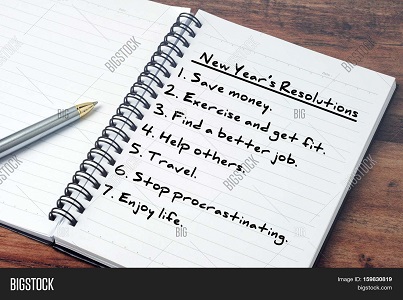 New Year's Resolutions
1. Save money.
2. Exercise and get fit.
3. Find a better job.
4. Help others.
5. Travel.
6. Stop procrastinating.
7. Enjoy life.
BIGSTOCK
BIGSTOCK
BIGSTOCK
BIGSTOCK
BIGSTOCK
BIG
BIG
BIG
BIG
BIGSTOCK
Image ID: 159830819
bigstock.com